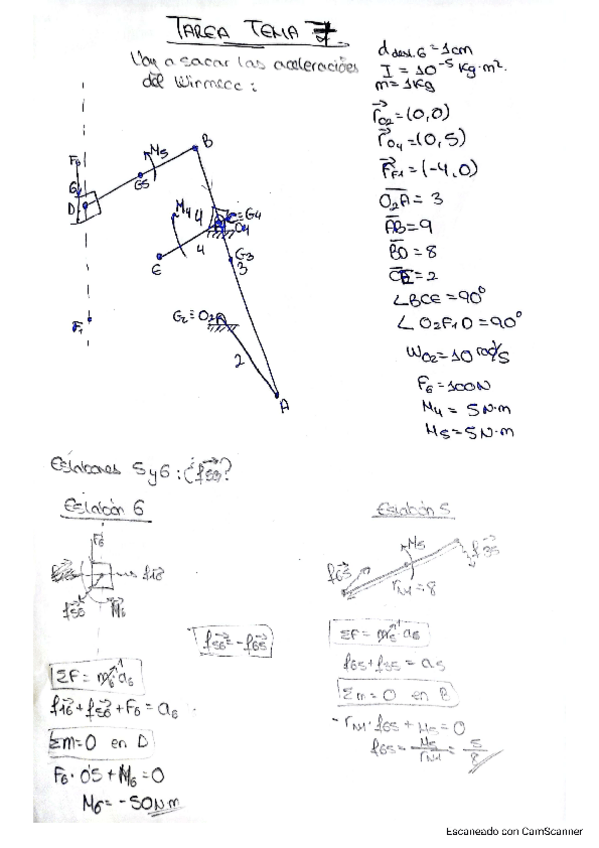 TAREA TEMA 7
Voy a sacar las aceleraciones
del Winmecc:
d desl.6 = 1cm
I = 10⁻⁵ Kg·m².
m = 1Kg
r⃗O2 = (0,0)
r⃗O4 = (0,5)
r⃗F1 = (-4,0)
O2A = 3
AB = 9
BD = 8
CE = 2
∠BCE = 90°
∠O2F1D = 90°
ωO2 = 10 rad/s
F6 = 100N
M4 = 5N·m
M5 = 5N·m
B
M5
G5
F6
6
D
M4
4
C≡G4
O4
4
E
G3
3
G2≡O2
F1
2
A
Eslabones 5 y 6: ¿f⃗53?
Eslabón 6
Eslabón 5
F6
f16
f56
M6
M5
f35
f65
rN1=8
f⃗56=-f⃗65
ΣF = m6·a6
f16+f56+F6 = a6
Σm=0 en D
F6·0'5+M6=0
M6=-50Nm
ΣF = m5·a5
f65+f35 = a5
Σm=0 en B
-rN1·f65+M5=0
f65 = M5/rN1 = 5/8
Escaneado con CamScanner